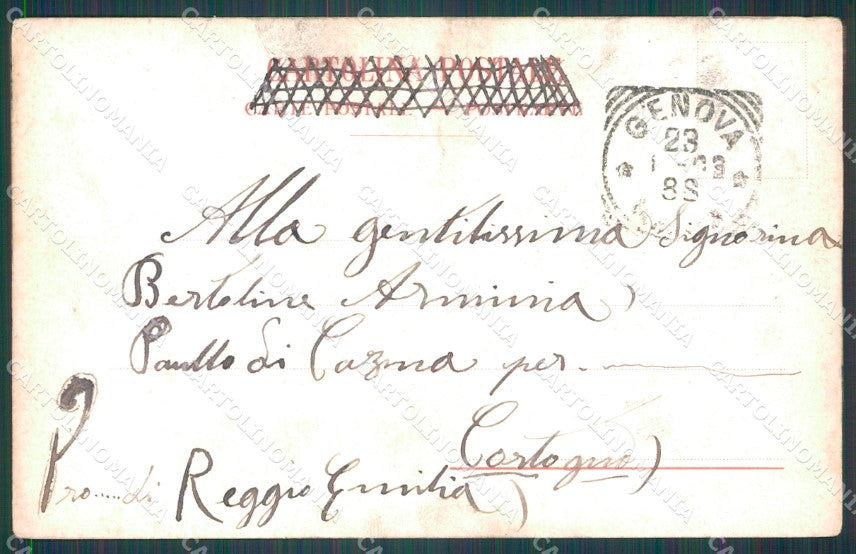 CARTOLINA POSTALE
GENOVA
23
88
Alla gentilissima Signorina
Bertoline Arminia
Paullo di Cazma per
Cortogno)
Pro.....di Reggio Emilia)
CARTOLINOMANIA